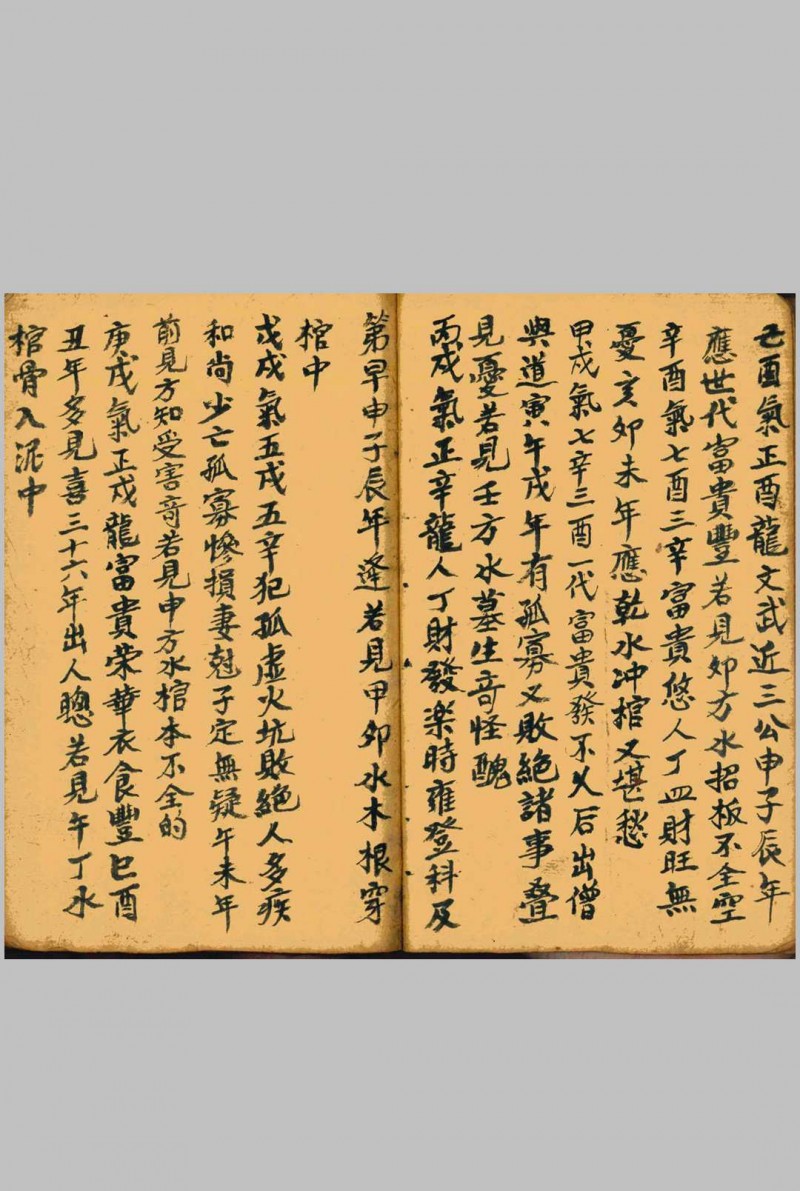 己酉氣正酉龍文武近三公申子辰年
應世代富貴豐若見卯方水招板不全空
辛酉氣七酉三辛富貴悠人丁皿財旺無
憂亥卯未年應乾水冲棺又堪愁
甲戍氣七辛三酉一代富貴發不久后出僧
與道寅午戍年有孤寡又敗絕諸事疊
見憂若見壬方水墓生奇怪醜
丙戍氣正辛龍人丁財發楽時雍登科及
第早申子辰年逢若見甲卯水木根穿
棺中
戊戍氣五戍五辛犯孤虛火坑敗絕人多疾
和尚少亡孤寡慘損妻尅子定無疑午未年
前見方知受害奇若見申方水棺本不全的
庚戍氣正戍龍富貴荣華衣食豐巳酉
丑年多見喜三十六年出人聰若見午丁水
棺骨入泥中